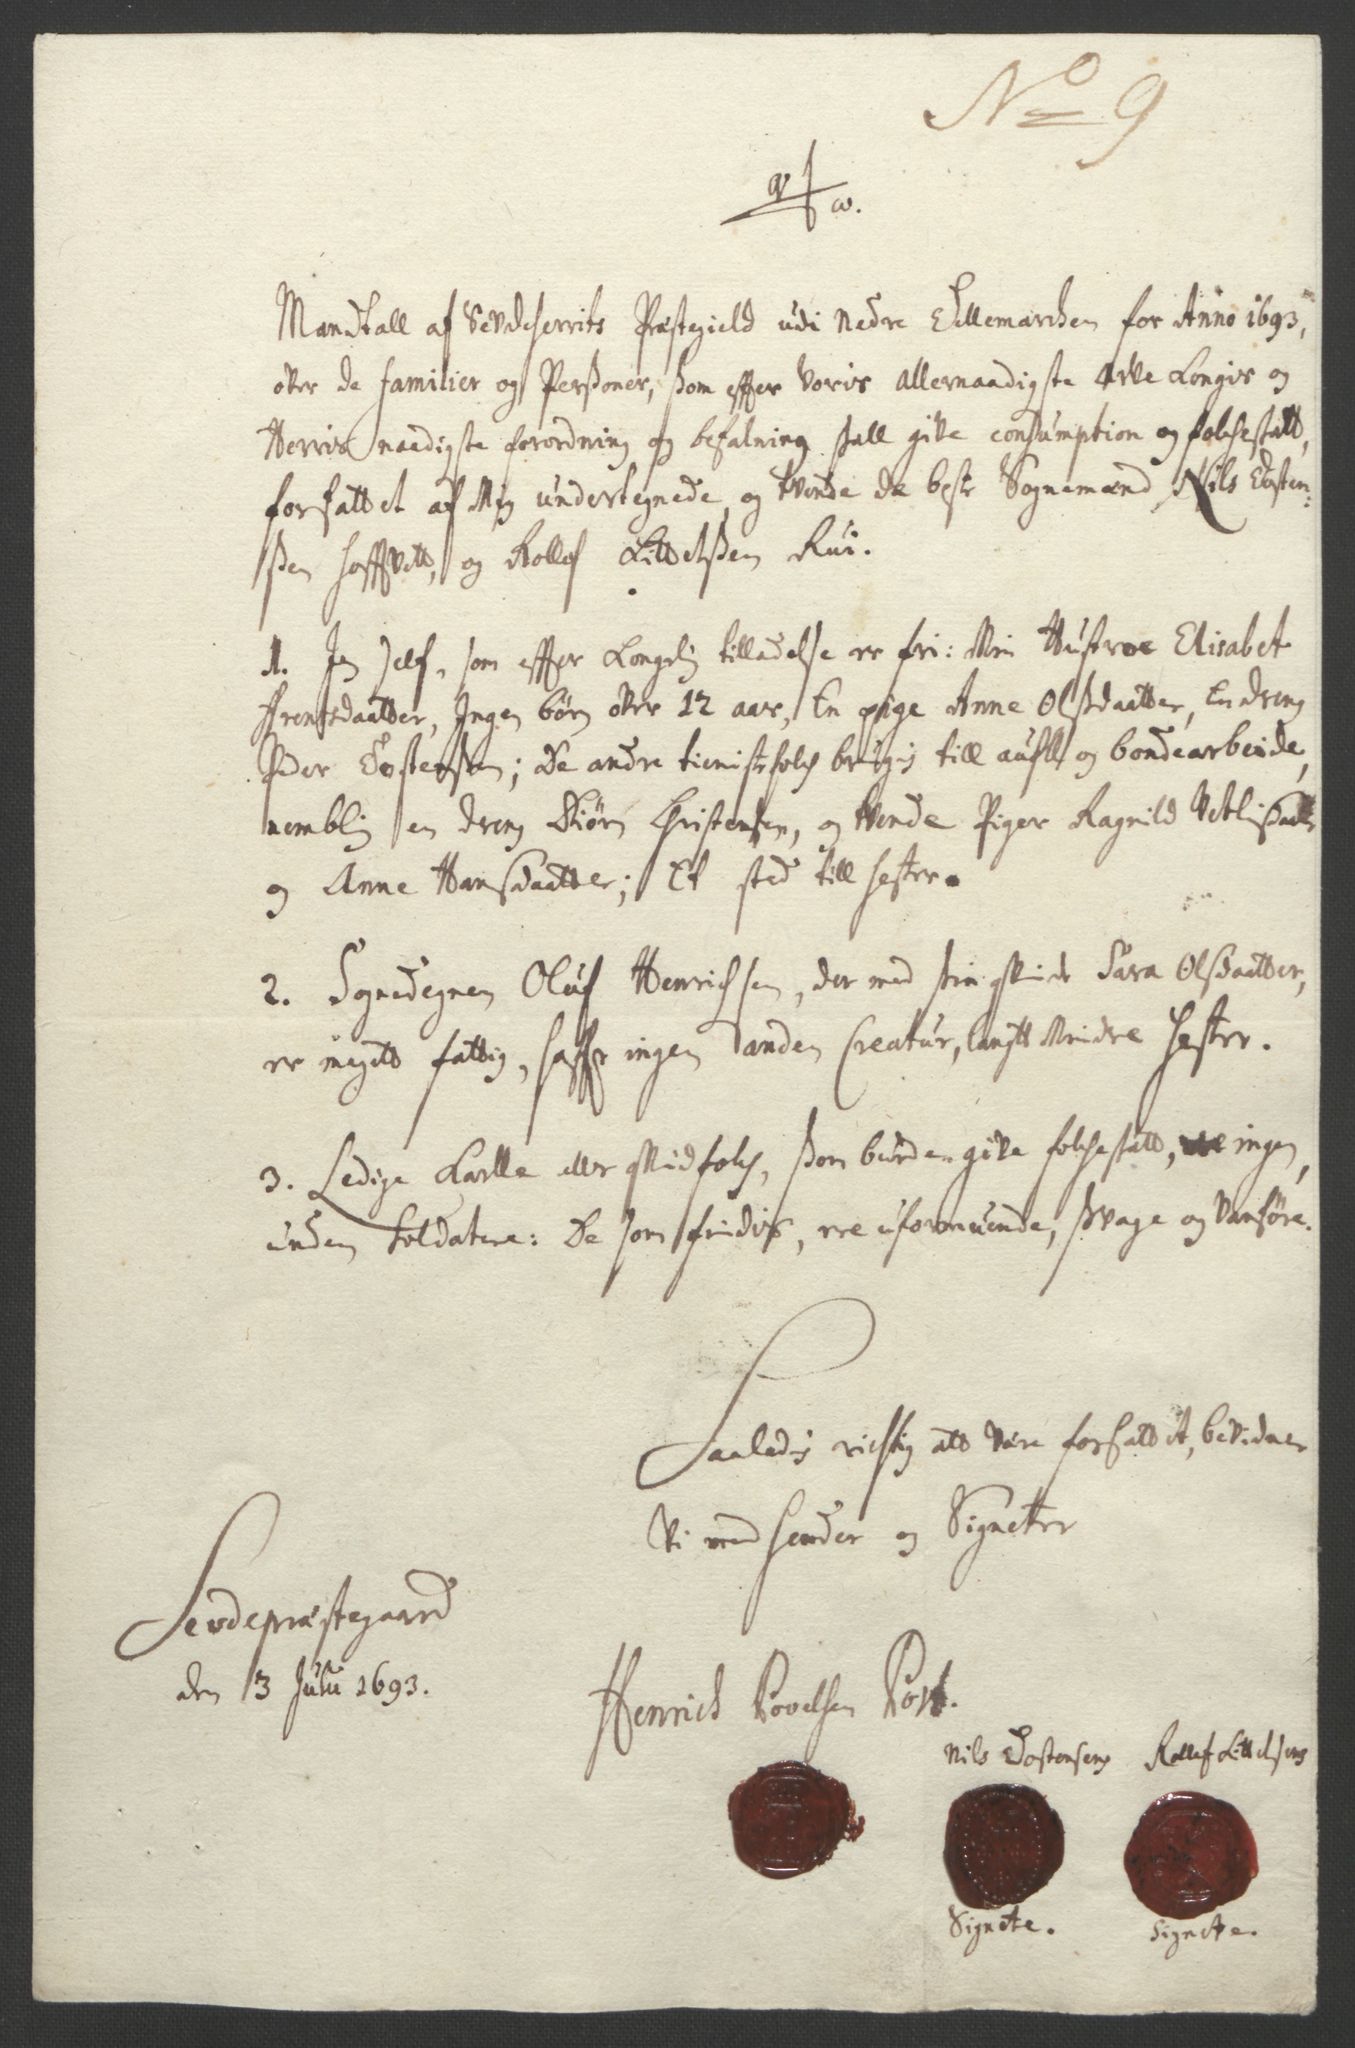 No 9
Mandtall af Sevdeherrits Præstegield udi Nedre Tellemarchen for Anno 1693,
over de familier og Perßoner, ßom effter voris allernaadigste Arve Kongis og
Herris naadigste forordning og befalning skall give consumption og folcheskatt,
forfattet af Mig undertegnede og tvende de beste Sognemænd, Nils Tosten:
ßen Hoffvett, og Rollef Kittelßen Rui.
1. Jeg self, som effter Kongelig tilladelse er fri: Min Hustroe Elisabet
Frentsdaatter, Ingen børn over 12 aar, En pige Anne Olsdaatter, En dreng
Peder Tostensen; De andre tienistefolch brugis till aufll og bondearbeide,
nemblig en dreng Biørn Christensen, og tvende Piger Ragnild Vetlisdaatter
og Anne Hansdaatter; Et sted till hester.
2. Sognedegnen Oluf Henrichsen, der med sin qvinde Sara Olsdaatter,
er megit fattig, haffr ingen anden Creatur, langt mindre hester.
3. Ledige Karlle eller qvindfolch, ßom burde give folcheskatt, ere ingen,
uden Soldatene: De som findis, ere uformuende, svage og vanføre.
Saaledis richtig att være forfattet, bevidner
Vi med hender og Signeter
Sevdepræstegaard
den 3 Julii 1693.
Henrich Povelsen Post.
Nils Tostensens Rollef Kittelsens
Signete. Signete.